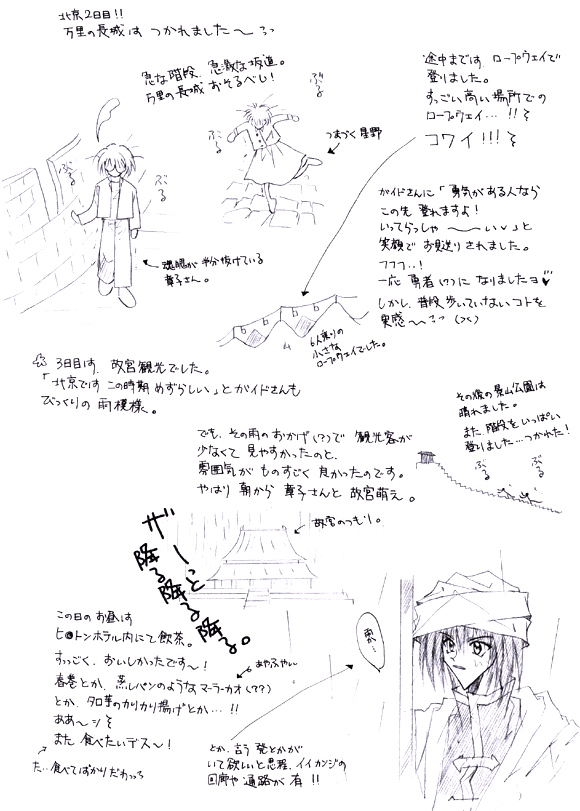 北京2日目!!
万里の長城は つかれました〜
急な階段、急激な坂道。
万里の長城 おそるべし!
ぶる
ぶる
ぶる
ぶる
つまづく星野
魂が半分抜けている
章子さん。
途中まではロープウェイで
登りました。
すっごい高い場所での
ロープウェイ…!!
コワイ!!!
ガイドさんに「勇気がある人なら
この先 登れますよ!
いってらっしゃ〜〜い♥」と
笑顔で お見送りされました。
フフフ…!
一応 勇者(?)に なりましたヨ♥
しかし、普段歩いていないコトを
実感〜
6人乗りの
小さな
ロープウェイでした。
3日目は、故宮観光でした。
「北京では この時期 めずらしい」とガイドさんも
びっくりの 雨模様。
その後の景山公園は
晴れました。
また 階段をいっぱい
登りました…つかれた!
ぶる
ぶる
でも、その雨のおかげ(?)で 観光客が
少なくて 見やすかったのと、
雰囲気が ものすごく 良かったのです。
やはり 朝から 章子さんと 故宮萌え。
故宮のつもり。
ザーッと
降る降る降る。
この日のお昼は
ヒ●トンホテル内にて飲茶。
すっごく、おいしかったです〜!
あやふや
春巻とか、蒸しパンのようなマーラーカオ(??)
とか、タロ芋のカリカリ揚げとか…!!
ああ〜
また 食べたいデス〜!
た…食べてばかりだわっ
雨…
とか、言う 発とかが
いて欲しいと思う程、イイカンジの
回廊や 通路が 有!!